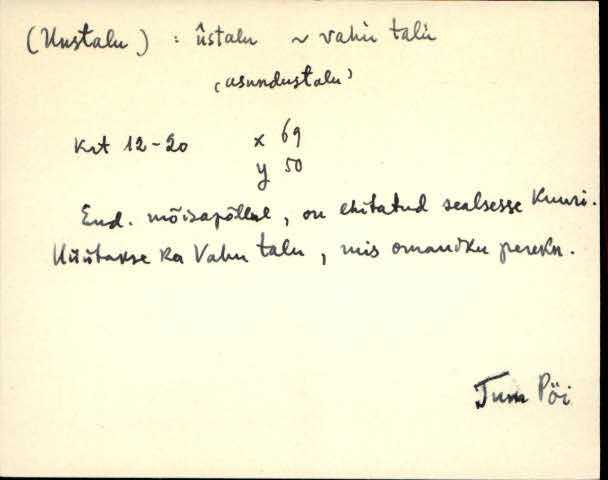 (Uustalu) : ûstalu ~ vahu talu
(asundustalu)
krt 12-20 x 69
y 50
End. mõisapõllul, on ehitatud sealsesse kuuri.
Hüütakse ka Vahu talu, mis omandku perekn.
Jum Pöi